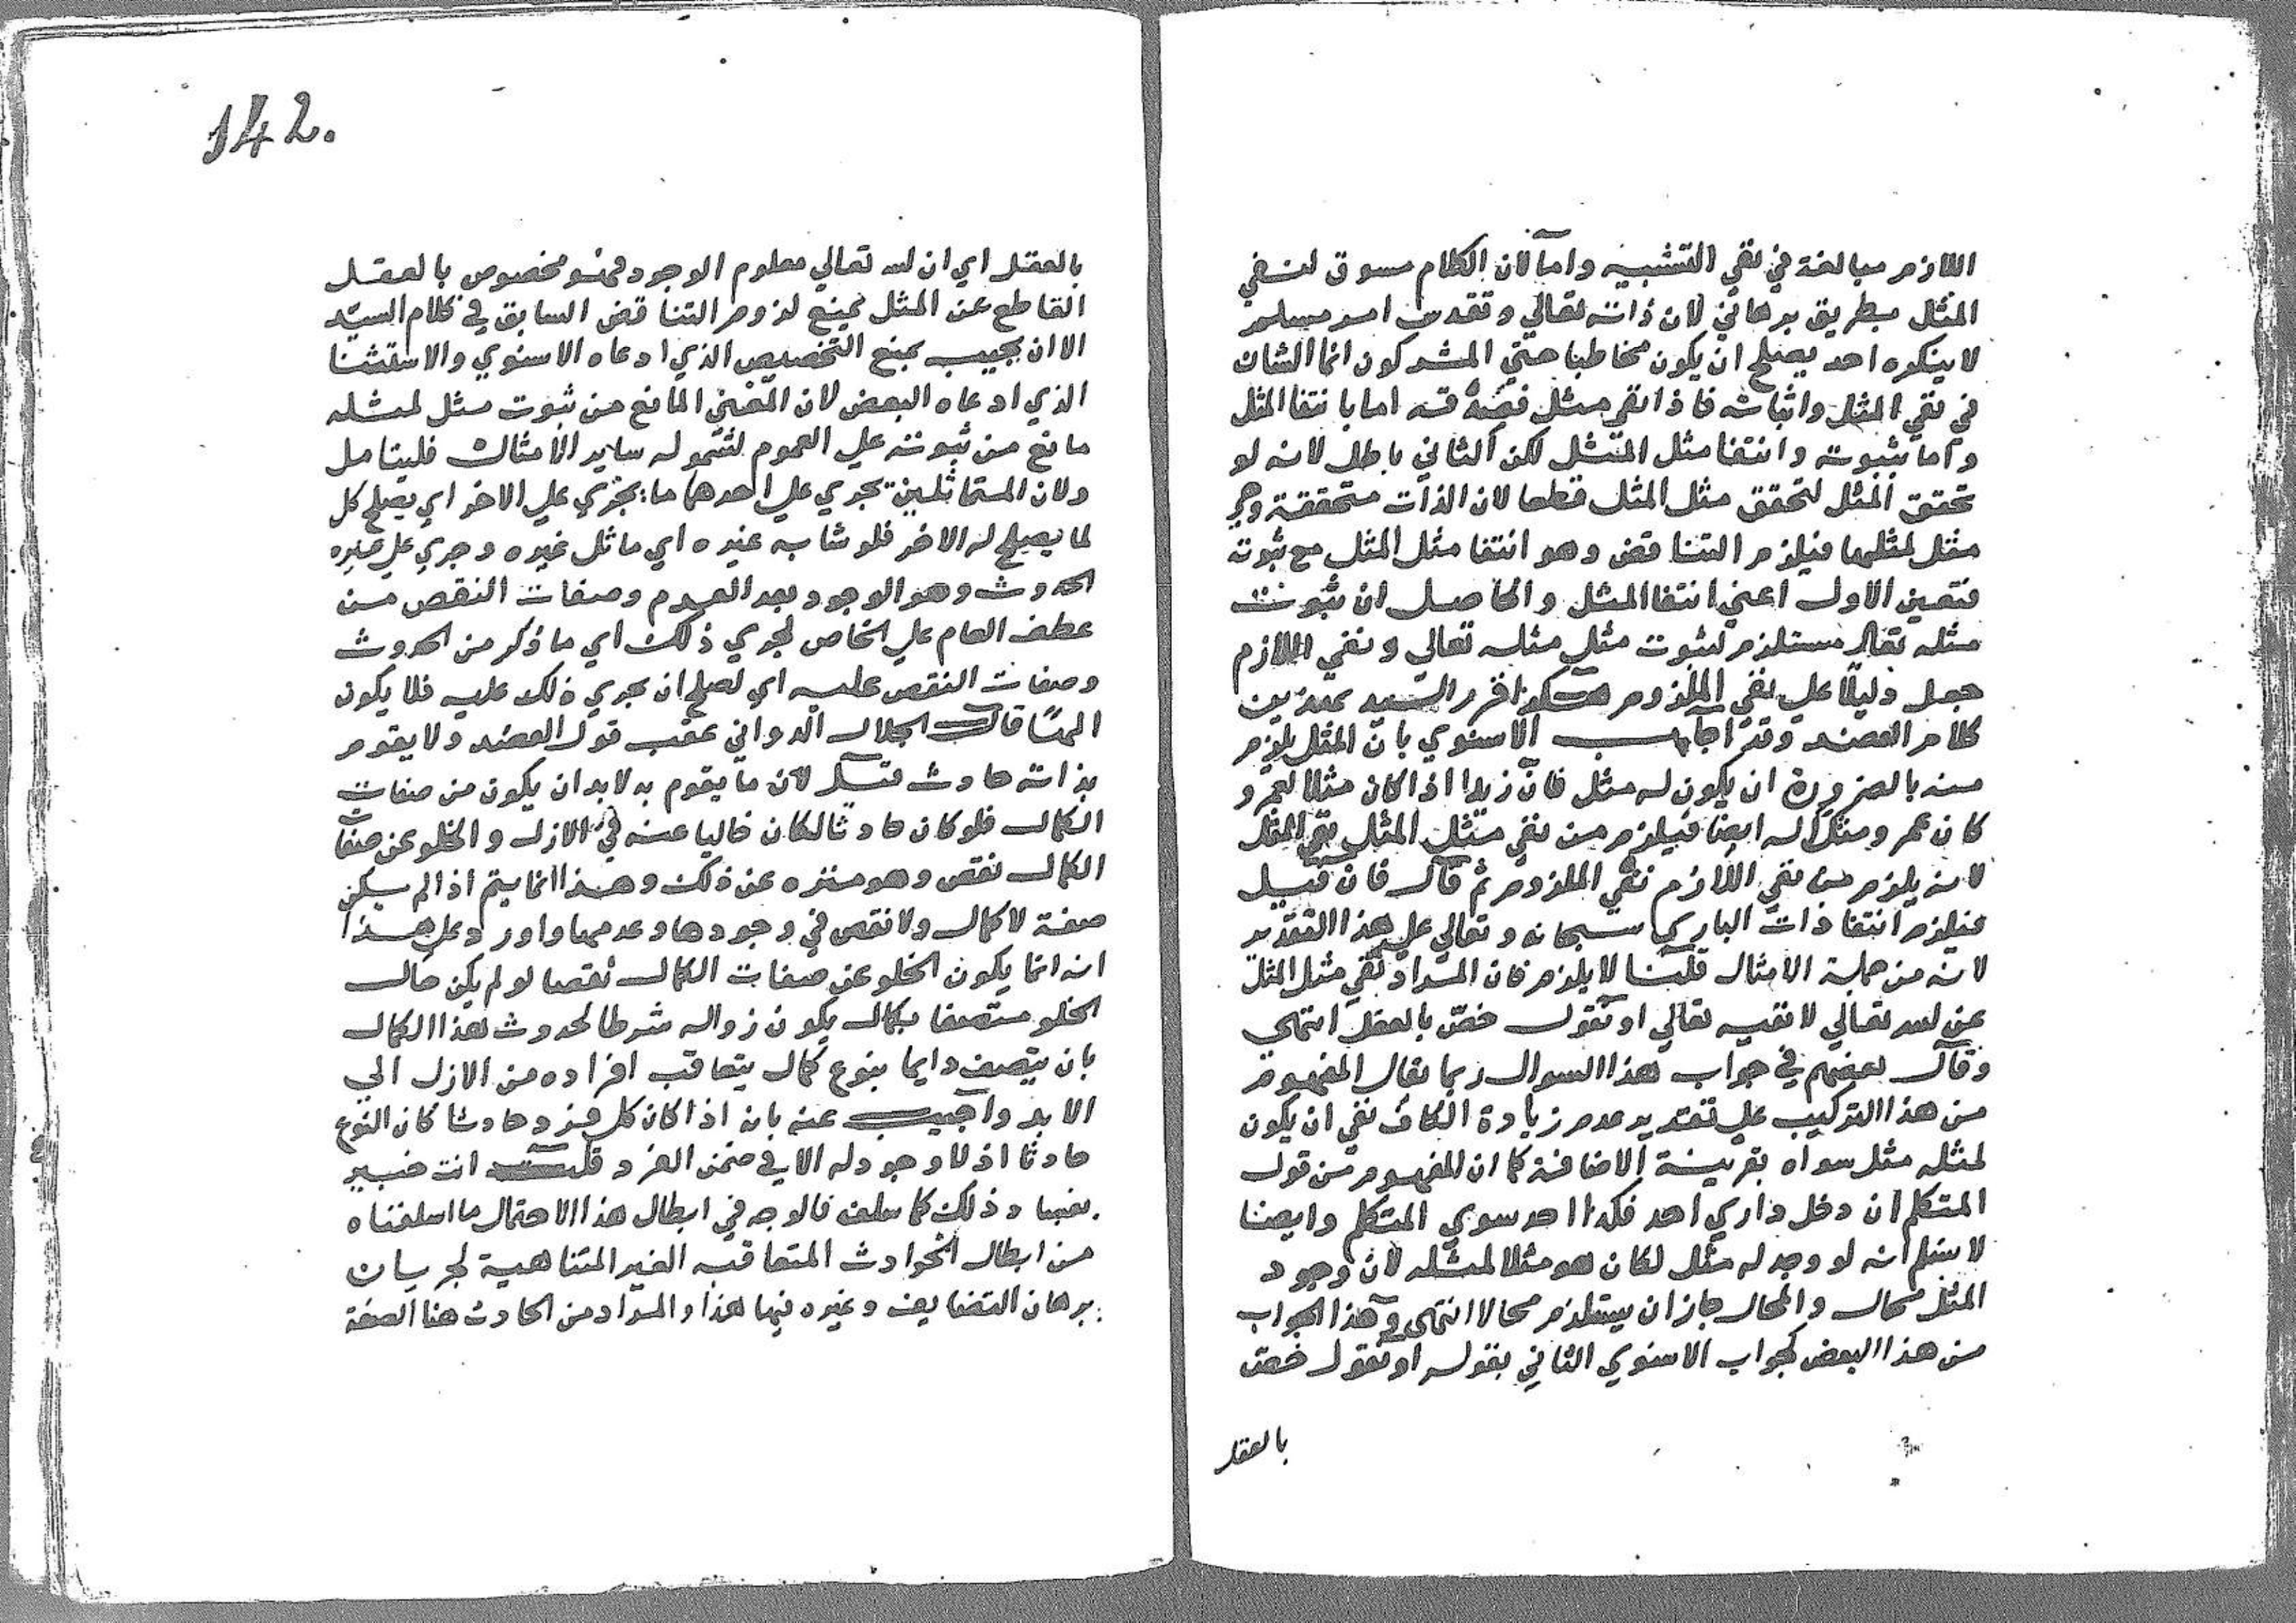 اللازم مبالغة في نفي التشبيه واما لان الكلام مسوق لنفي
المثل بطريق برهاني لان ذاته تعالي وتقدس امر مسلم
لا ينكره احد يصلح ان يكون مخاطبا حتي المشركون انما الشان
في نفي المثل واثباته فاذا نفي مثل مثله اما بانتفا المثل
واما بثبوته وانتفا مثل المثل لكن الثاني باطل لانه لو
تحقق المثل لتحقق مثل المثل قطعا لان الذات متحققة وهي
مثل لمثلها فيلزم التناقض وهو انتفا مثل المثل مع ثبوته
فتعين الاول اعني انتفا المثل والحاصل ان ثبوت
مثله تعالي مستلزم لثبوت مثل مثله تعالي ونفي اللازم
جعل دليلا علي نفي الملزوم هكذا قرر السيد
كلام العضد وقد اجاب الاسنوي بان المثل يلزم
منه بالضرورة ان يكون له مثل فان زيدا اذا كان مثلا لعمرو
كان عمرو مثلا له ايضا فيلزم من نفي مثل المثل نفي المثل
لانه يلزم من نفي اللازم نفي الملزوم ثم قال فان قيل
فيلزم انتفا ذات الباري سبحانه وتعالي علي هذا التقدير
لانه من جملة الامثال قلنا لا يلزم فان المراد نفي مثل المثل
عن الله تعالي لا نفيه تعالي او نقول خص بالعقل انتهي
وقال بعضهم في جواب هذا السوال ربما يقال المفهوم
من هذا التركيب علي تقدير عدم زيادة الكاف نفي ان يكون
لمثله مثل سواه بقرينة الاضافة كما ان المفهوم من قول
المتكلم ان دخل داري احد فكذا احد سوي المتكلم وايضا
لا نسلم انه لو وجد له مثل لكان هو مثلا لمثله لان وجود
المثل محال والمحال جاز ان يستلزم محالا انتهي وهذا الجواب
من هذا البعض كجواب الاسنوي الثاني بقوله او نقول خص
بالعقل
142.
بالعقل اي ان الله تعالي معلوم الوجود فهو مخصوص بالعقل
القاطع عن المثل يمنع لزوم التناقض السابق في كلام السيد
الا ان يجيب بمنع التخصيص الذي ادعاه الاسنوي والاستثنا
الذي ادعاه البعض لان المعني المانع من ثبوت مثل لمثله
مانع من ثبوته علي العموم لشموله ساير الامثال فليتامل
ولان المتماثلين يجري علي احدهما ما يجري علي الاخر اي يصلح كل
لما يصلح له الاخر فلو شابه غيره اي ماثل غيره وجري علي غيره
الحدوث وهو الوجود بعد العدم وصفات النقص من
عطف العام علي الخاص لجري ذلك اي ما ذكر من الحدوث
وصفات النقص عليه اي لصلح ان يجري ذلك عليه فلا يكون
الهًا قال الجلال الدواني عقب قول العضد ولا يقوم
بذاته حادث قيل لان ما يقوم به لابد ان يكون من صفات
الكمال فلو كان حادثا لكان خاليا عنه في الازل والخلو عن صفات
الكمال نقص وهو منزه عن ذلك وهذا انما يتم اذا لم يكن
صفة لا كمال ولا نقص في وجودها وعدمها واورد علي هذا
انه انما يكون الخلو عن صفات الكمال نقصا لو لم يكن حال
الخلو متصفا بكمال يكون زواله شرطا لحدوث هذا الكمال
بان يتصف دايما بنوع كمال يتعاقب افراده من الازل الي
الابد واجيب عنه بانه اذا كان كل فرد حادثا كان النوع
حادثا اذ لا وجود له الا في ضمن الفرد قلت انت خبير
بفساد ذلك كما سلف فالوجه في ابطال هذا الاحتمال ما اسلفناه
من ابطال الحوادث المتعاقبه الغير المتناهية لجريان
برهان التضايف وغيره فيها هذا والمراد من الحادث هنا الصفة